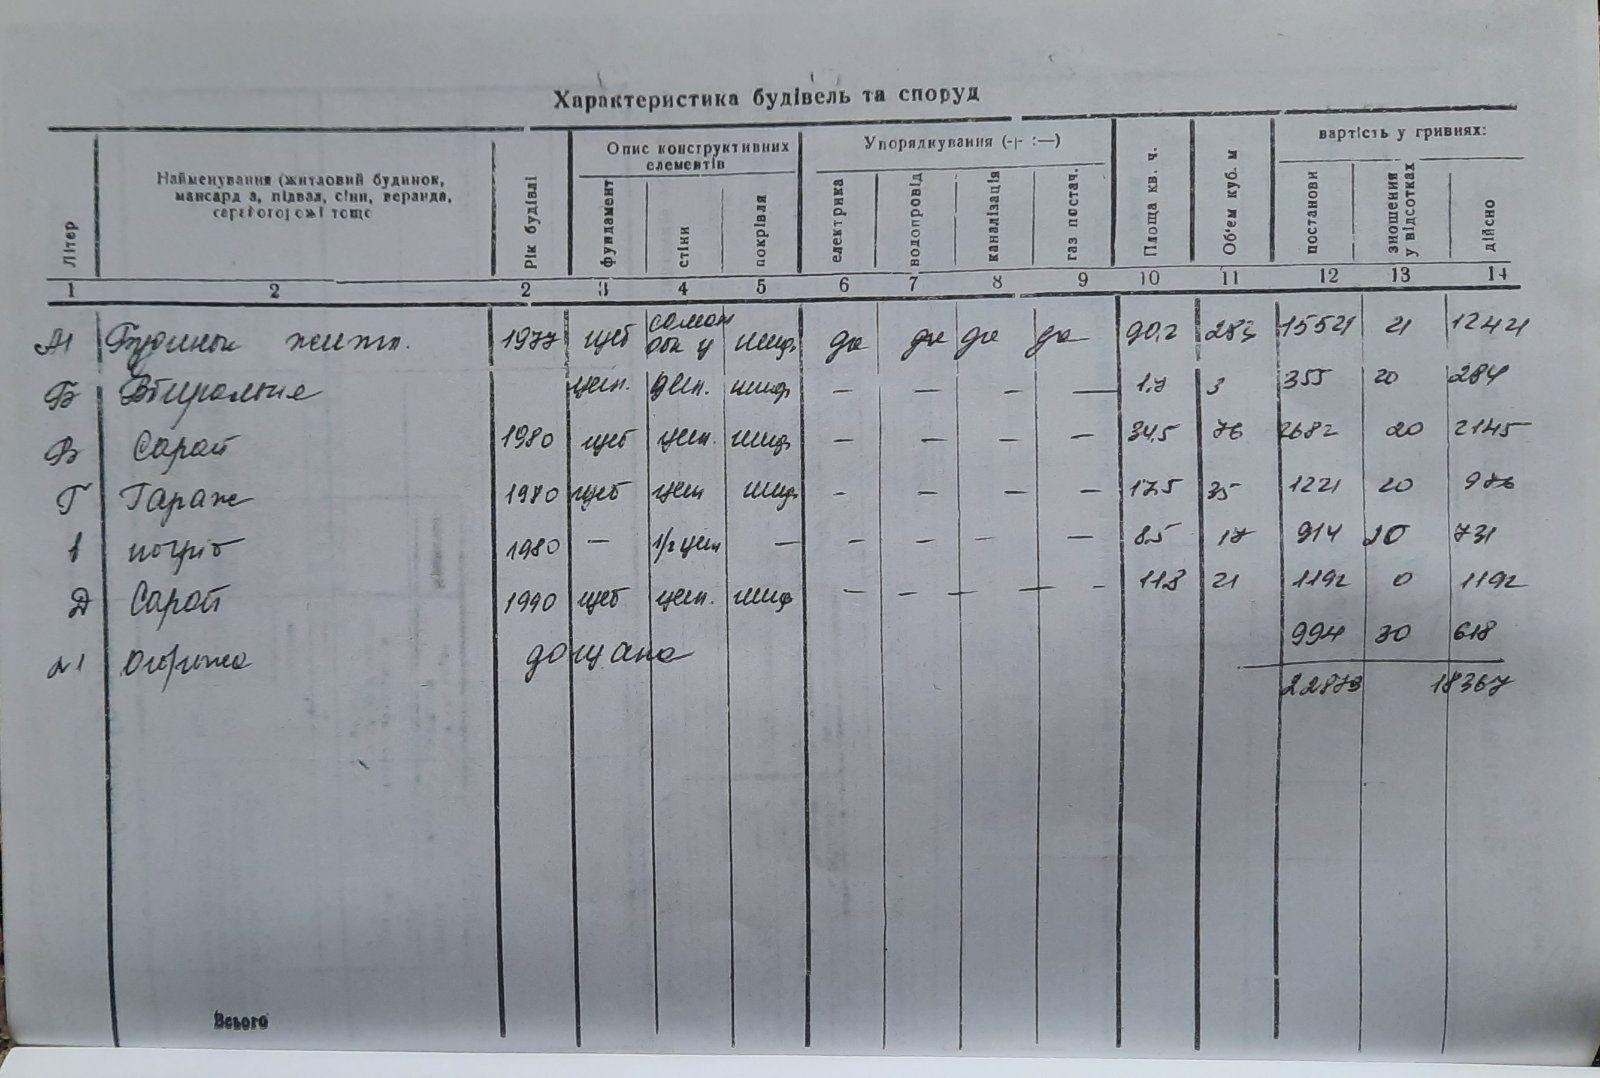 Характеристика будівель та споруд
Літер
Найменування (житловий будинок, мансарда, підвал, сіни, веранда,
Рік будівлі
Опис конструктивних елементів
фундамент стіни покрівля
Упорядкування (-|- :—)
електрика водопровід каналізація газ постач.
Площа кв. ч.
Об'ем куб. м
вартість у гривнях:
постанови зношення у відсотках дійсно
1 2 2 3 4 5 6 7 8 9 10 11 12 13 14
Будинок житл. 1977 цеб саман обк ц шиф. да да да да 90,2 283 15521 21 12421
Б Вбиральня цегл. шиф — — — — 1.7 3 355 20 284
В Сарай 1980 цеб цегл. шиф — — — — 34,5 76 2682 20 2145
Г Гараж 1980 цеб цегл шиф — — — — 17,5 35 1221 20 976
погріб 1980 — 1/2 цегл — — — — — 8.5 17 914 20 731
Д Сарай 1990 цеб цегл. шиф — — — - 11.8 21 1192 0 1192
№1 Огорожа дощана 994 30 618
22879 18367
Всього